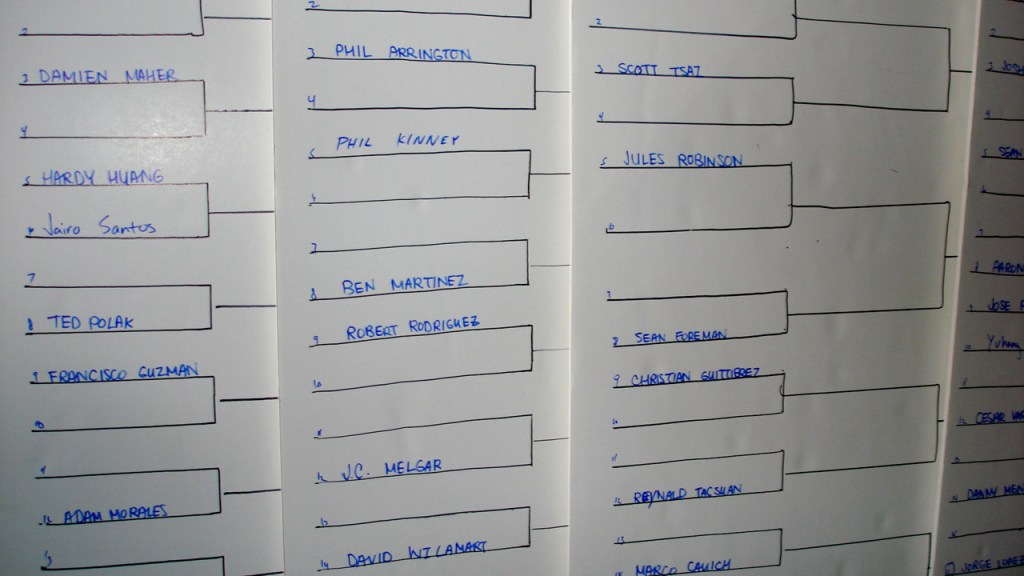 2
3 DAMIEN MAHER
4
5 HARDY HUANG
6 Jairo Santos
7
8 TED POLAK
9 FRANCISCO GUZMAN
10
11
12 ADAM MORALES
13
2
3 PHIL ARRINGTON
4
5 PHIL KINNEY
6
7
8 BEN MARTINEZ
9 ROBERT RODRIGUEZ
10
11
12 J.C. MELGAR
13
14 DAVID WILAMART
2
3 SCOTT TSAI
4
5 JULES ROBINSON
6
7
8 SEAN FOREMAN
9 CHRISTIAN GUITTIEREZ
10
11
12 REYNALD TACSUAN
13
MARCO CAUICH
2
3 JOSH
4
5 SEAN
6
7
8 AARON
9 JOSE
10 Yuhang
11
12 CESAR
13
14 DANNY
JORGE LOPEZ